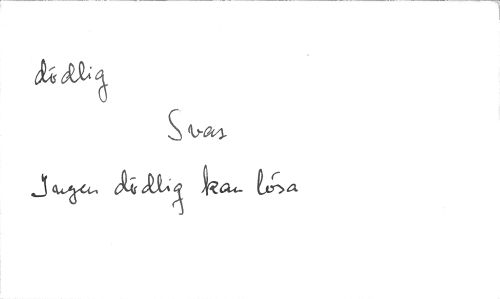 dödlig
Svar
Ingen dödlig kan lösa